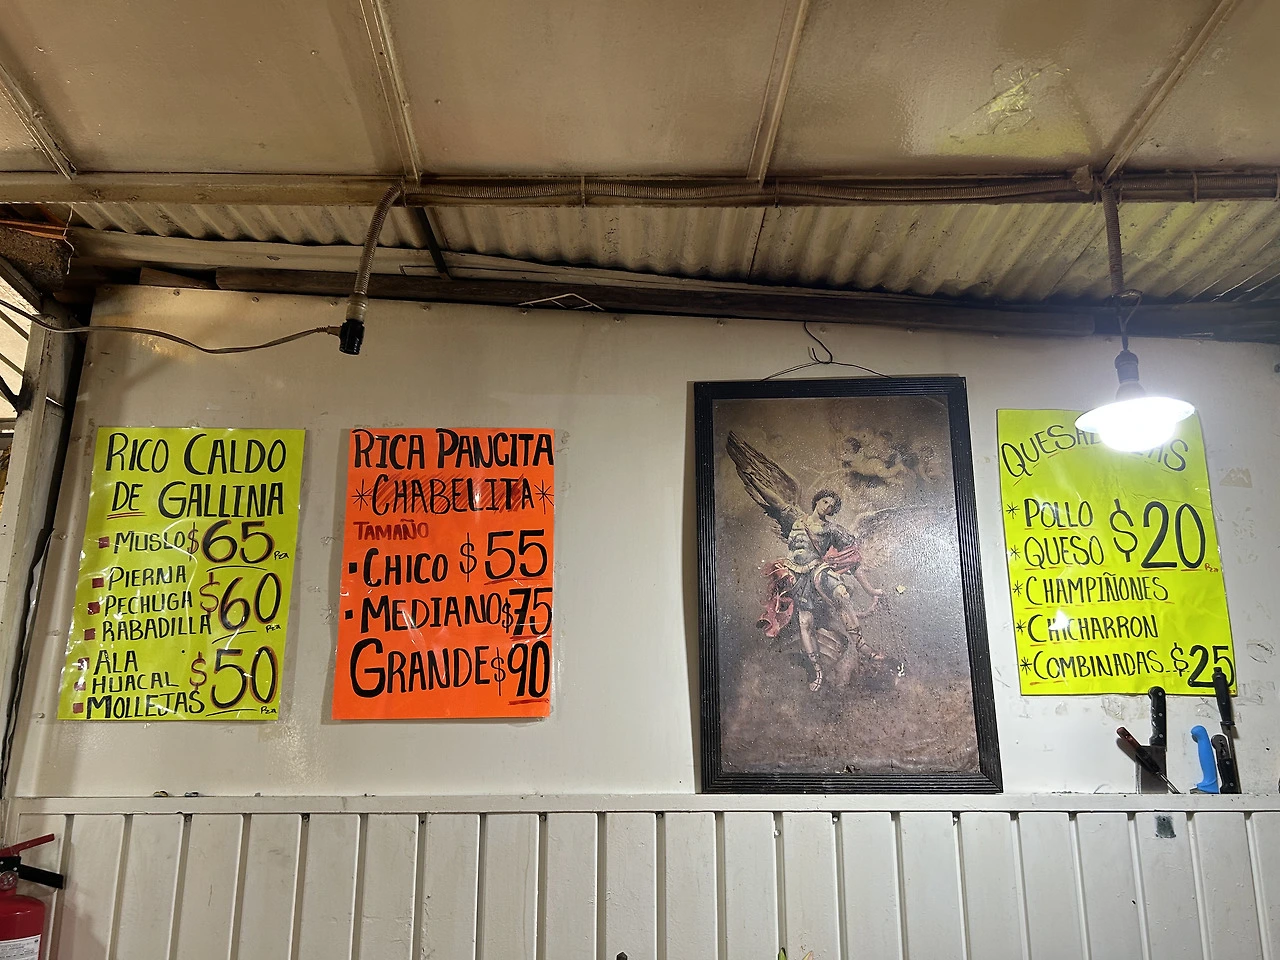 RICO CALDO
DE GALLINA
MUSLO $65 Pza
PIERNA
PECHUGA $60 Pza
RABADILLA
ALA
HUACAL $50 Pza
MOLLEJAS
RICA PANCITA
*CHABELITA*
TAMAÑO
CHICO $55
MEDIANO $75
GRANDE $90
* POLLO $20 Pza
* QUESO
* CHAMPIÑONES
* CHICHARRON
* COMBINADAS $25